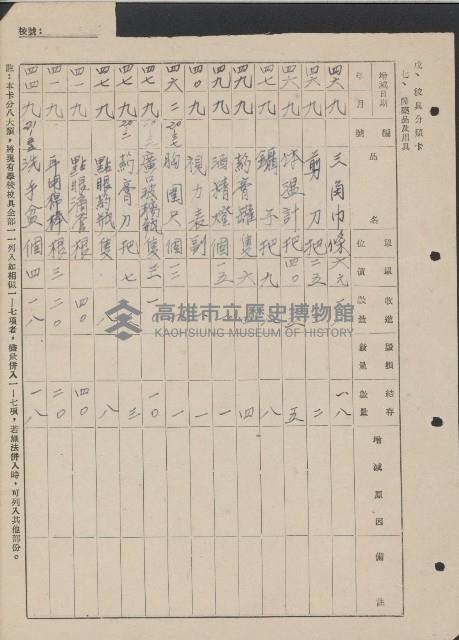 校號：
戊、校具分類卡
七、醫藥品及用具
增減日期 年 月 編號 品名 單位 單價 收進數量 毀損數量 結存數量 增減原因 備註
四六 九 三角巾 條 一八
四六 九 剪刀 把 二五 二
四六 九 体溫計 把 四〇 五
四七 九 鑷子 把 九 八
四九 九 药膏罐 隻 六 四
四九 九 酒精燈 個 一五 一
四〇 九 視力表 副 一
四六 二 胸圍尺 個 一
四七 九 廣口玻璃瓶 隻 三 一〇
四七 九 药膏刀 把 七 三
四七 九 點眼药瓶 隻 八
四一 九 點眼滴管 根 四〇 四〇
四一 九 耳用棉棒 根 三 二〇 二〇
四四 九 洗手盆 個 四 一八 一八
註：本卡分八大類，將現有學校校具全部一一列入如相似一—七項者，儘量併入一—七項，若無法併入時，可列入其他部份。
高雄市立歷史博物館
KAOHSIUNG MUSEUM OF HISTORY